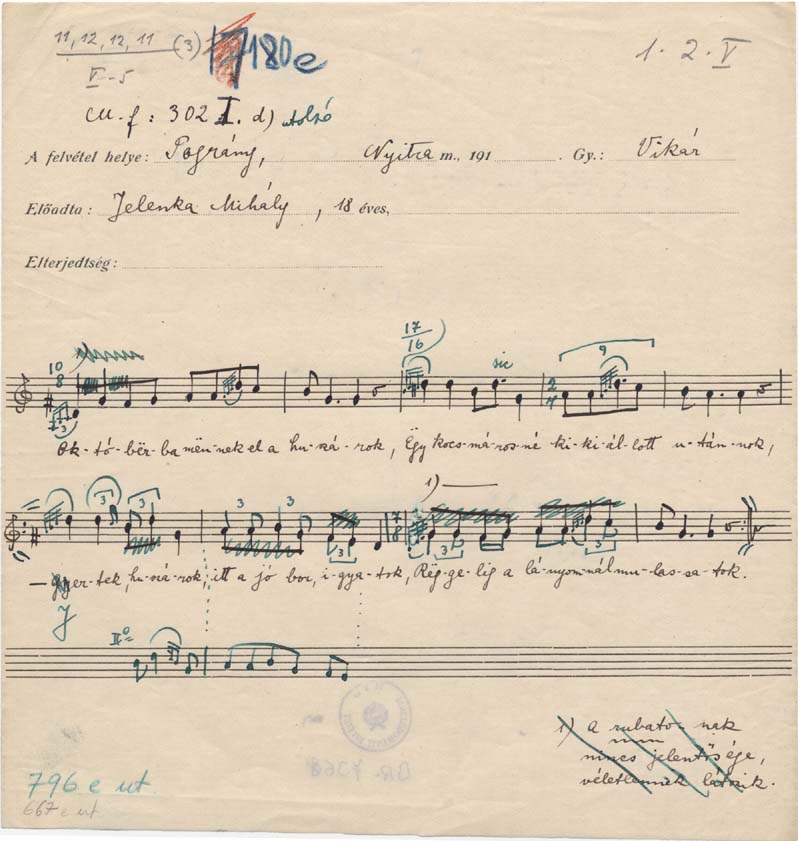 11, 12, 12, 11 (3) 180e 1. 2. V
V-5
M. f: 302 I. d) utolsó
A felvétel helye: Pográny, Nyitra m., 191 Gy.: Vikár
Előadta: Jelenka Mihály, 18 éves,
Elterjedtség:
17
16
10
8
sic
9
2
4
3
Ok-tó-bër-ba mën-nek el a hu-szá-rok, Ëgy kocs-má-ros-né ki-ki-ál-lott u-tán-nok,
1)
3
3
3
3
3
7
8
3
3
-gyer-tek, hu-szá-rok, itt a jó bor, i-gya-tok, Rëg-ge-lig a lá-nyom-nál mu-las-sa-tok.
J
II°=
1) a rubato-nak
nincs jelentősége,
véletlennek látszik.
796 e ut.
667 e ut